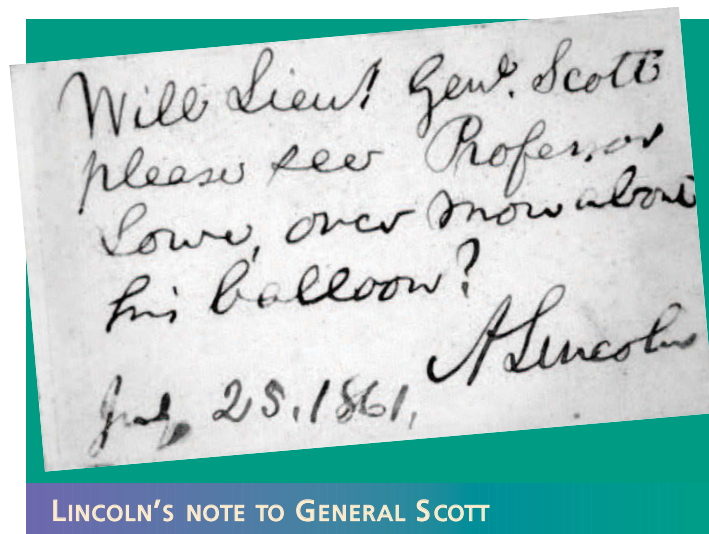 Will Lieut. Genl. Scott
please see Professor
Lowe, once more about
his balloon?
A. Lincoln
July 25. 1861.
LINCOLN'S NOTE TO GENERAL SCOTT